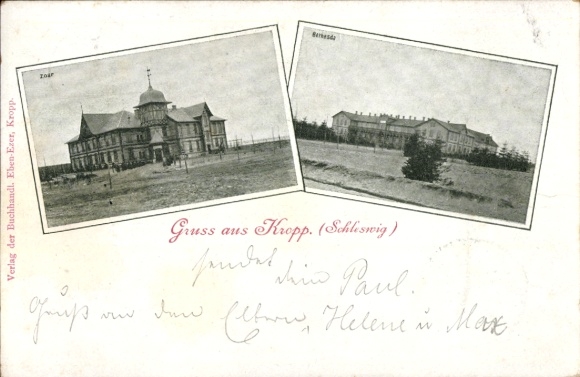 Zoar
Bethesda
Verlag der Buchhandl. Eben-Ezer, Kropp.
Gruss aus Kropp. (Schleswig)
sendet dein Paul.
Gruß an den Eltern, Helene u Max